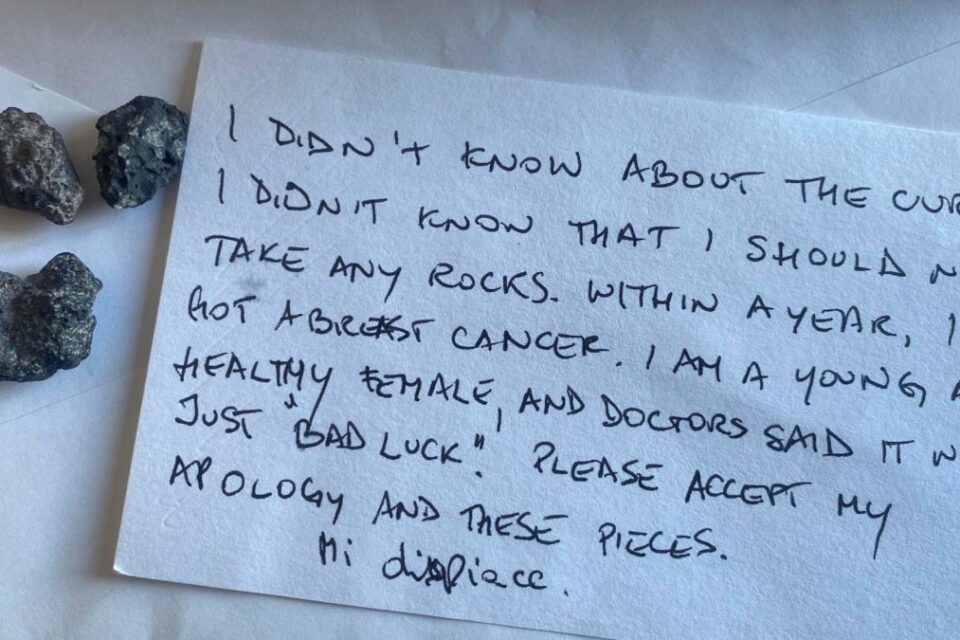 I DIDN'T KNOW ABOUT THE
I DIDN'T KNOW THAT I SHOULD
TAKE ANY ROCKS. WITHIN A YEAR, I
GOT A BREAST CANCER. I AM A YOUNG
HEALTHY FEMALE, AND DOCTORS SAID IT
JUST "BAD LUCK". PLEASE ACCEPT MY
APOLOGY AND THESE PIECES.
Mi dispiace.